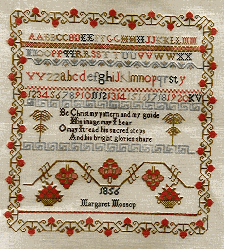 AABBCCDDEEFFGGHHIIJJKKLLMM
NNOOPPQQRRSSTTUUVVWWXX
YYZZabcdefghIJklmnopqrsty
1234567891011121314151617181920XV
Be Christ my pattern and my guide
His image may I bear
O may I tread his sacred steps
And his bright glories share
1836
Margaret Mossop